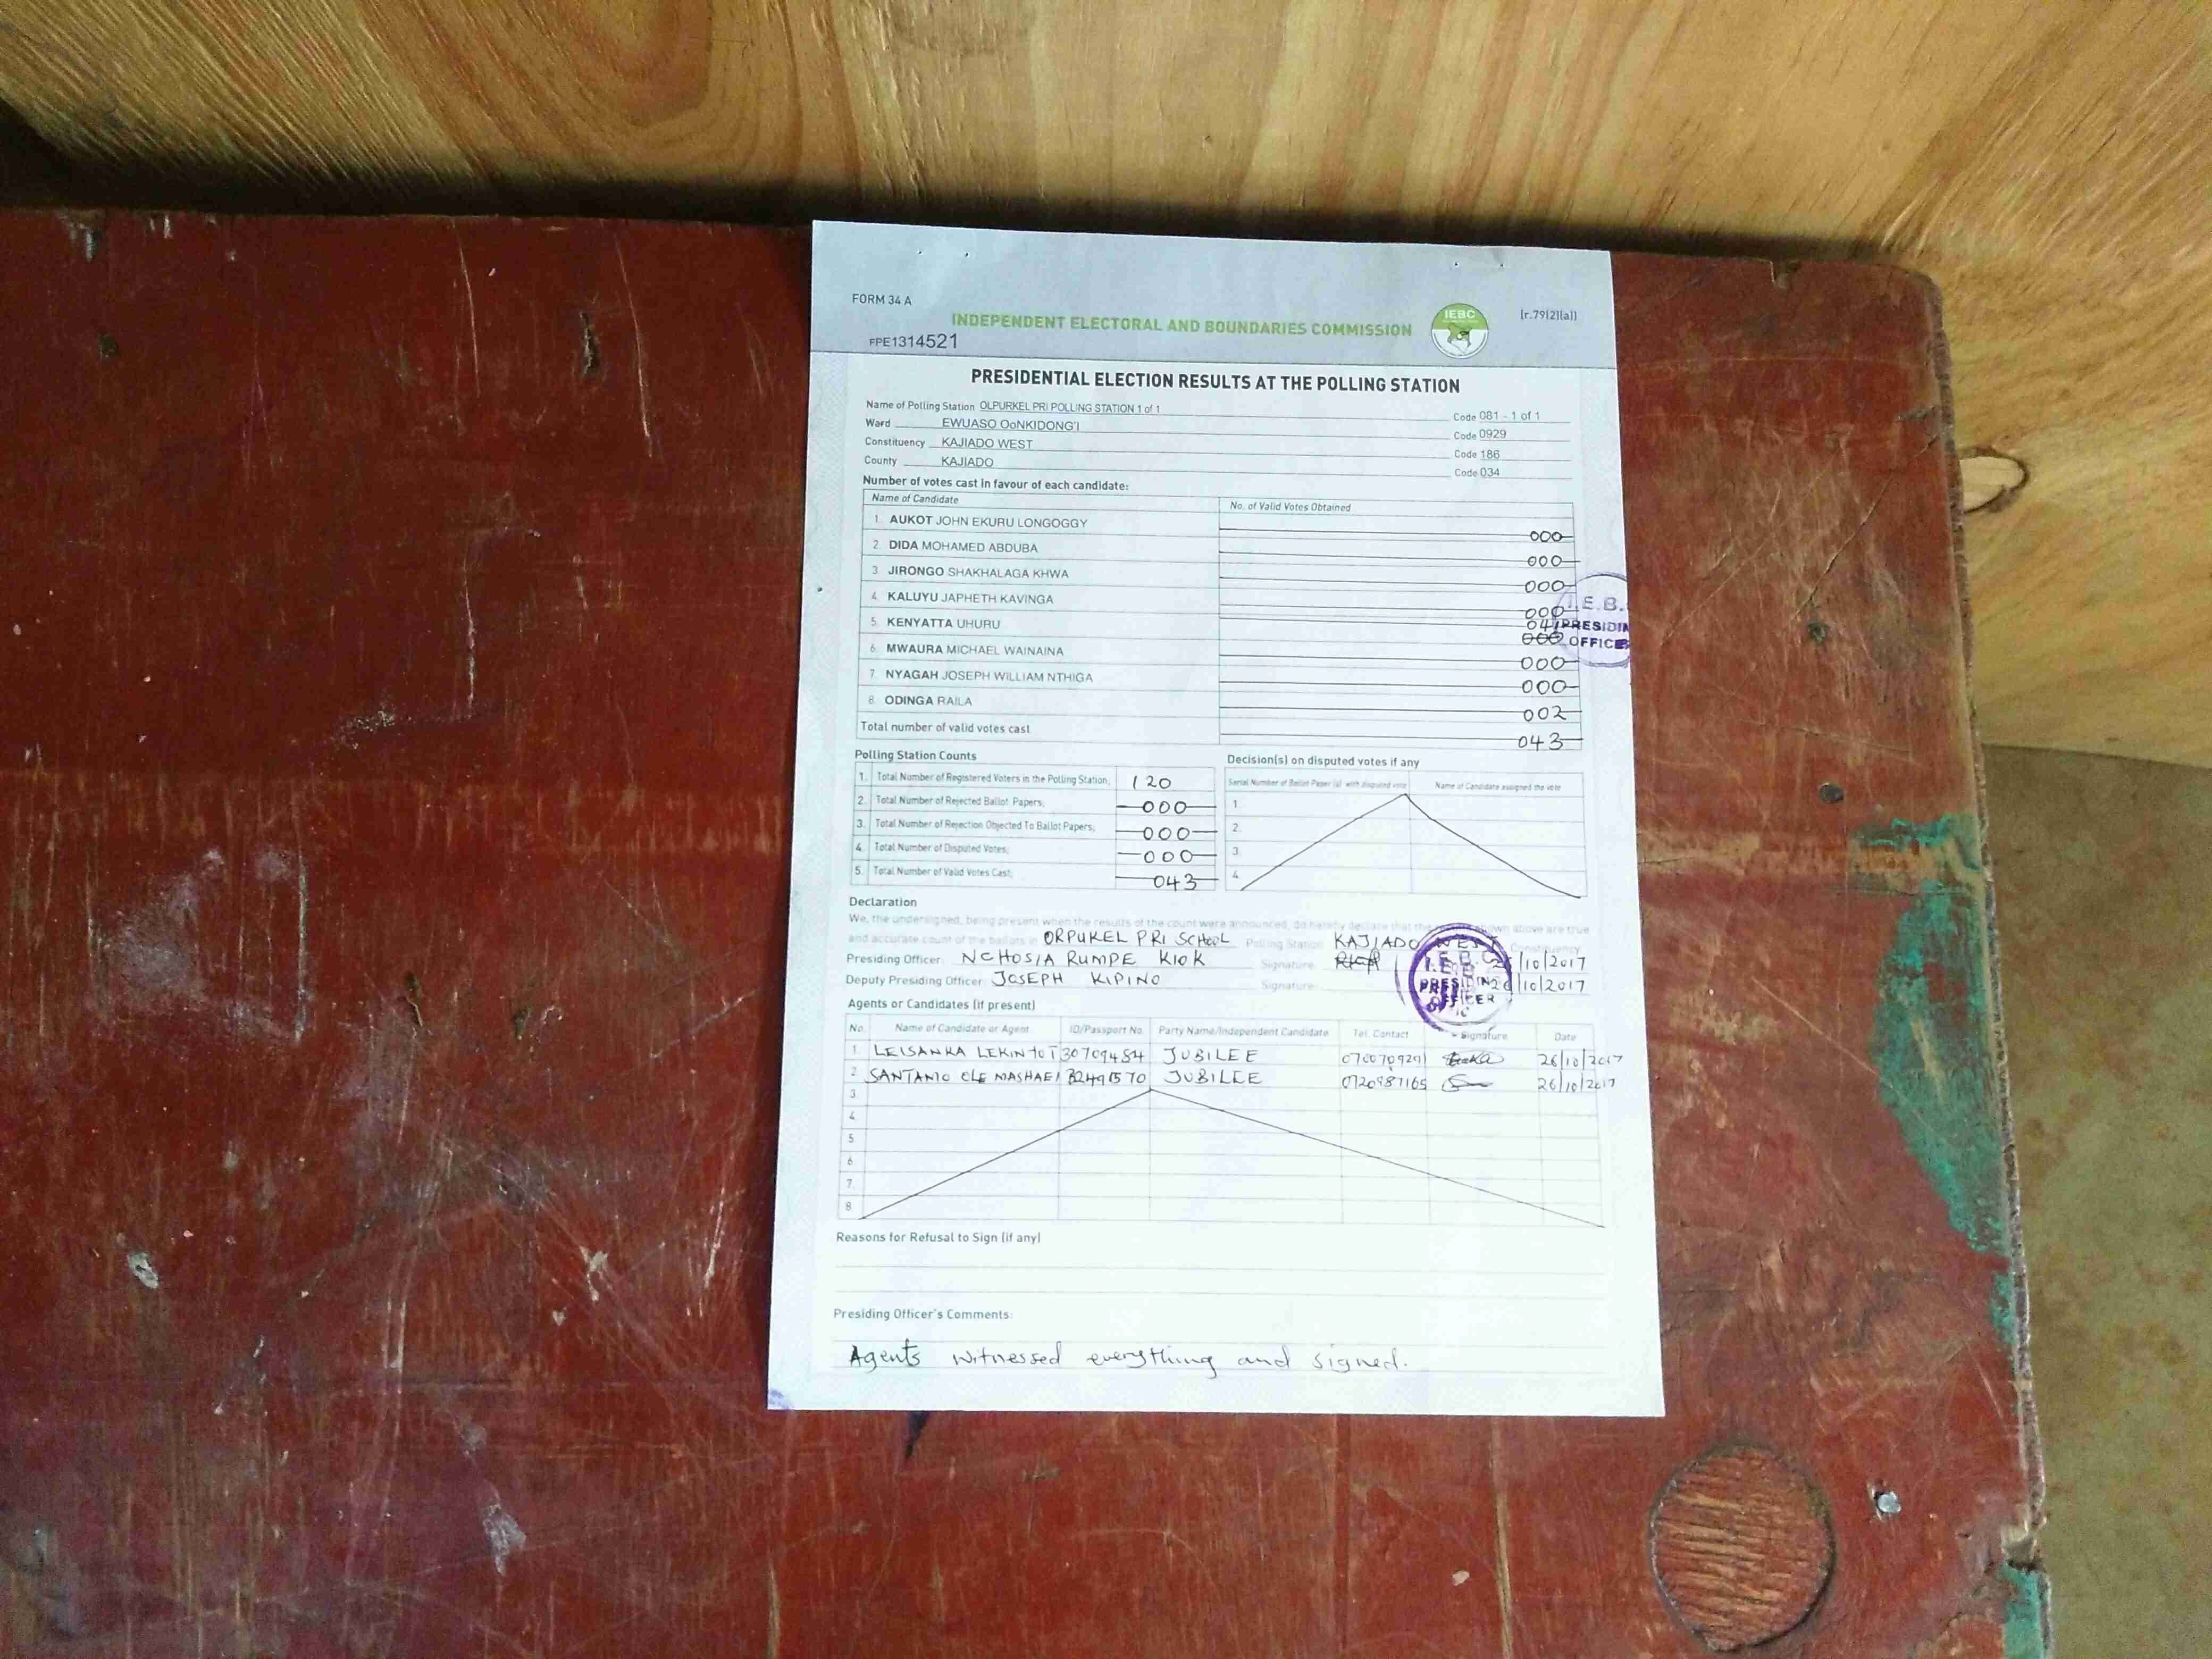 FORM 34 A
INDEPENDENT ELECTORAL AND BOUNDARIES COMMISSION
IEBC
[r.79(2)(a)]
FPE1314521
PRESIDENTIAL ELECTION RESULTS AT THE POLLING STATION
Name of Polling Station OLPURKEL PRI POLLING STATION 1 of 1 Code 081 - 1 of 1
Ward EWUASO OoNKIDONG'I Code 0929
Constituency KAJIADO WEST Code 186
County KAJIADO Code 034
Number of votes cast in favour of each candidate:
Name of Candidate No. of Valid Votes Obtained
1. AUKOT JOHN EKURU LONGOGGY 000
2. DIDA MOHAMED ABDUBA 000
3. JIRONGO SHAKHALAGA KHWA 000
4. KALUYU JAPHETH KAVINGA 000
5. KENYATTA UHURU 041 000
6. MWAURA MICHAEL WAINAINA 000
7. NYAGAH JOSEPH WILLIAM NTHIGA 000
8. ODINGA RAILA 002
Total number of valid votes cast 043
I.E.B.
PRESIDIN
OFFICE
Polling Station Counts
1. Total Number of Registered Voters in the Polling Station; 120
2. Total Number of Rejected Ballot Papers; 000
3. Total Number of Rejection Objected To Ballot Papers; 000
4. Total Number of Disputed Votes; 000
5. Total Number of Valid Votes Cast; 043
Decision(s) on disputed votes if any
Serial Number of Ballot Paper (s) with disputed vote Name of Candidate assigned the vote
1.
2.
3.
4.
Declaration
We, the undersigned, being present when the results of the count were announced, do hereby declare that the shown above are true
and accurate count of the ballots in ORPUKEL PRI SCHOOL Polling Station KAJIADO WEST Constituency
Presiding Officer: NCHOSIA RUMPE KIOK Signature: /10/2017
Deputy Presiding Officer: JOSEPH KIPINO Signature: 26/10/2017
I.E.B.C
PRESIDING
OFFICER
Agents or Candidates (if present)
No. Name of Candidate or Agent ID/Passport No. Party Name/Independent Candidate Tel. Contact Signature Date
1. LEISANKA LEKINTOI 30709484 JUBILEE 0700709291 26/10/2017
2. SANTAMO OLE MASHAEI JUBILEE 0720987165 26/10/2017
3.
4.
5.
6.
7.
8.
Reasons for Refusal to Sign (if any)
Presiding Officer's Comments:
Agents witnessed everything and signed.